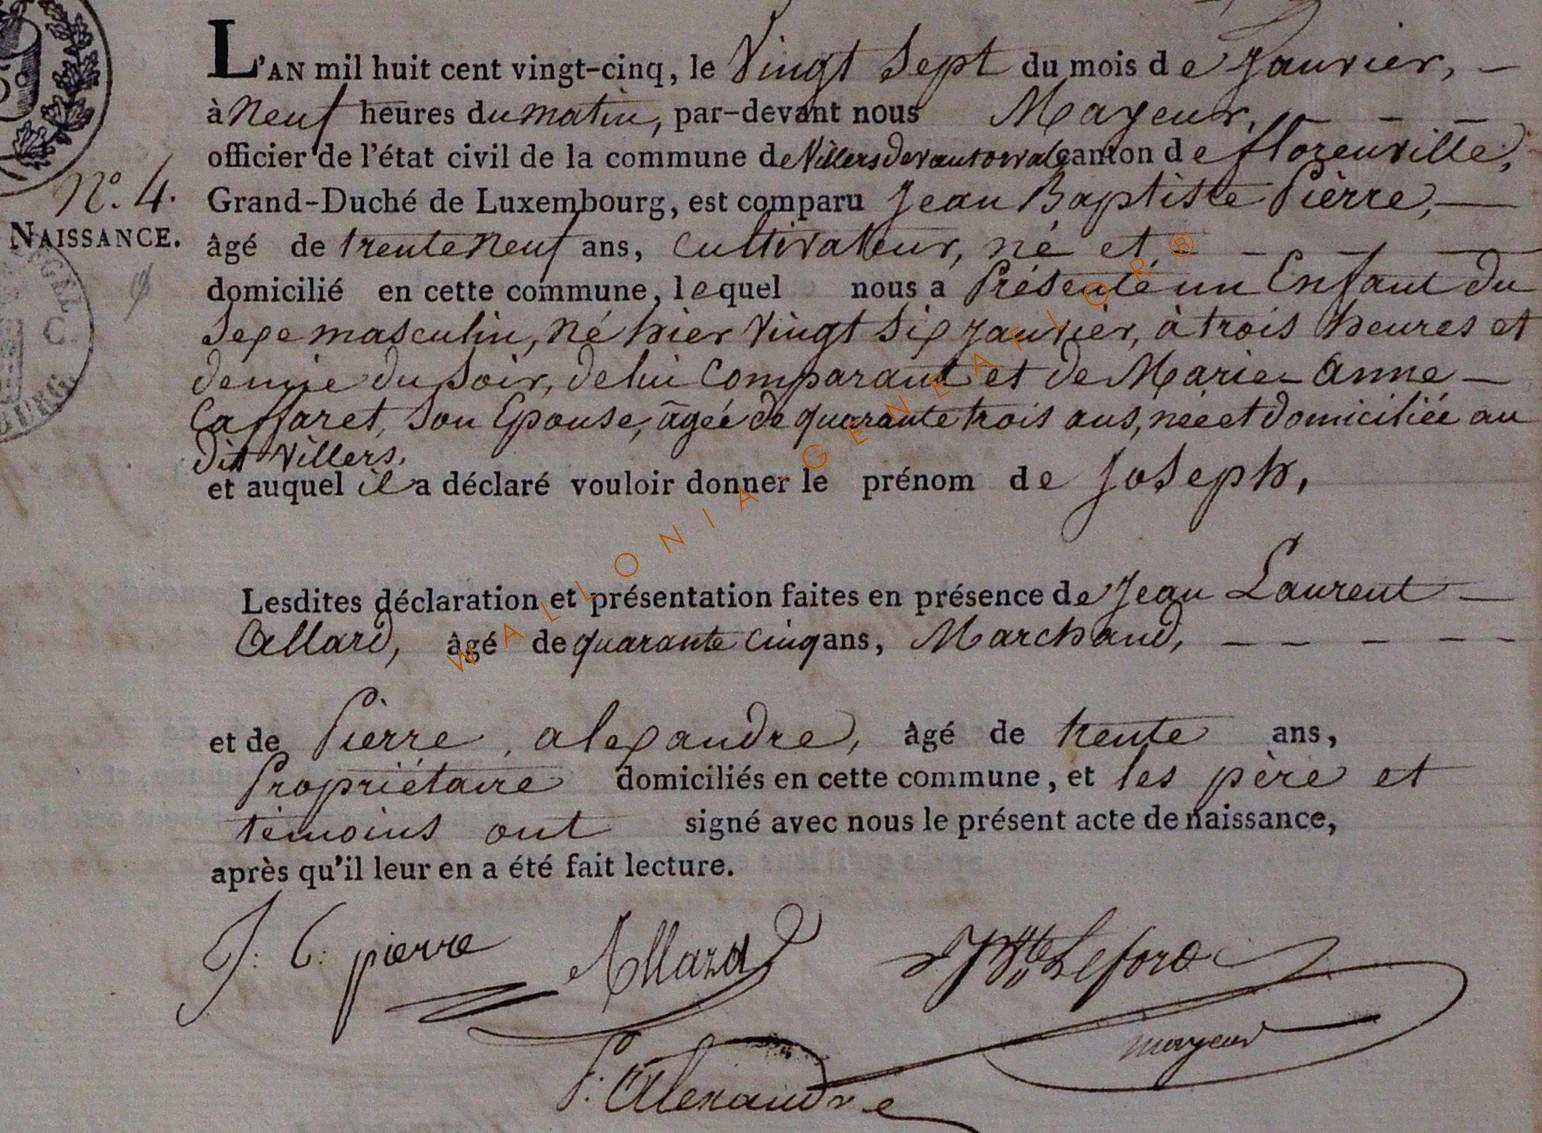 L'AN mil huit cent vingt-cinq, le Vingt Sept du mois de Janvier,
à neuf heures du matin, par-devant nous Mayeur,
officier de l'état civil de la commune de Villers devant orval canton de florenville,
N.° 4. Grand-Duché de Luxembourg, est comparu Jean Baptiste Pièrre,
NAISSANCE. âgé de trente neuf ans, cultivateur, né et
domicilié en cette commune, lequel nous a Présenté un Enfant du
Sexe masculin, né hier Vingt Six Janvier, à trois heures et
demie du Soir, de lui Comparant et de Marie-Anne
Caffaret, Son Epouse, âgée de quarante trois ans, née et domiciliée au
dit Villers,
et auquel il a déclaré vouloir donner le prénom de Joseph,
Lesdites déclaration et présentation faites en présence de Jean Laurent
Allard, âgé de quarante cinq ans, Marchand,
et de Pièrre alexandre, âgé de trente ans,
Propriétaire domiciliés en cette commune, et les père et
témoins ont signé avec nous le présent acte de naissance,
après qu'il leur en a été fait lecture.
J: B: pierre Allard JBte Lefort
mayeur
P: Alexandre
WALLONIA-GENEAFLOR®
C.
BURG